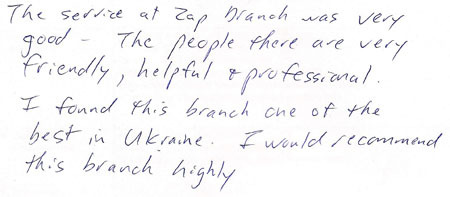 The service at Zap branch was very
good - The people there are very
friendly, helpful & professional.
I found this branch one of the
best in Ukraine. I would recommend
this branch highly